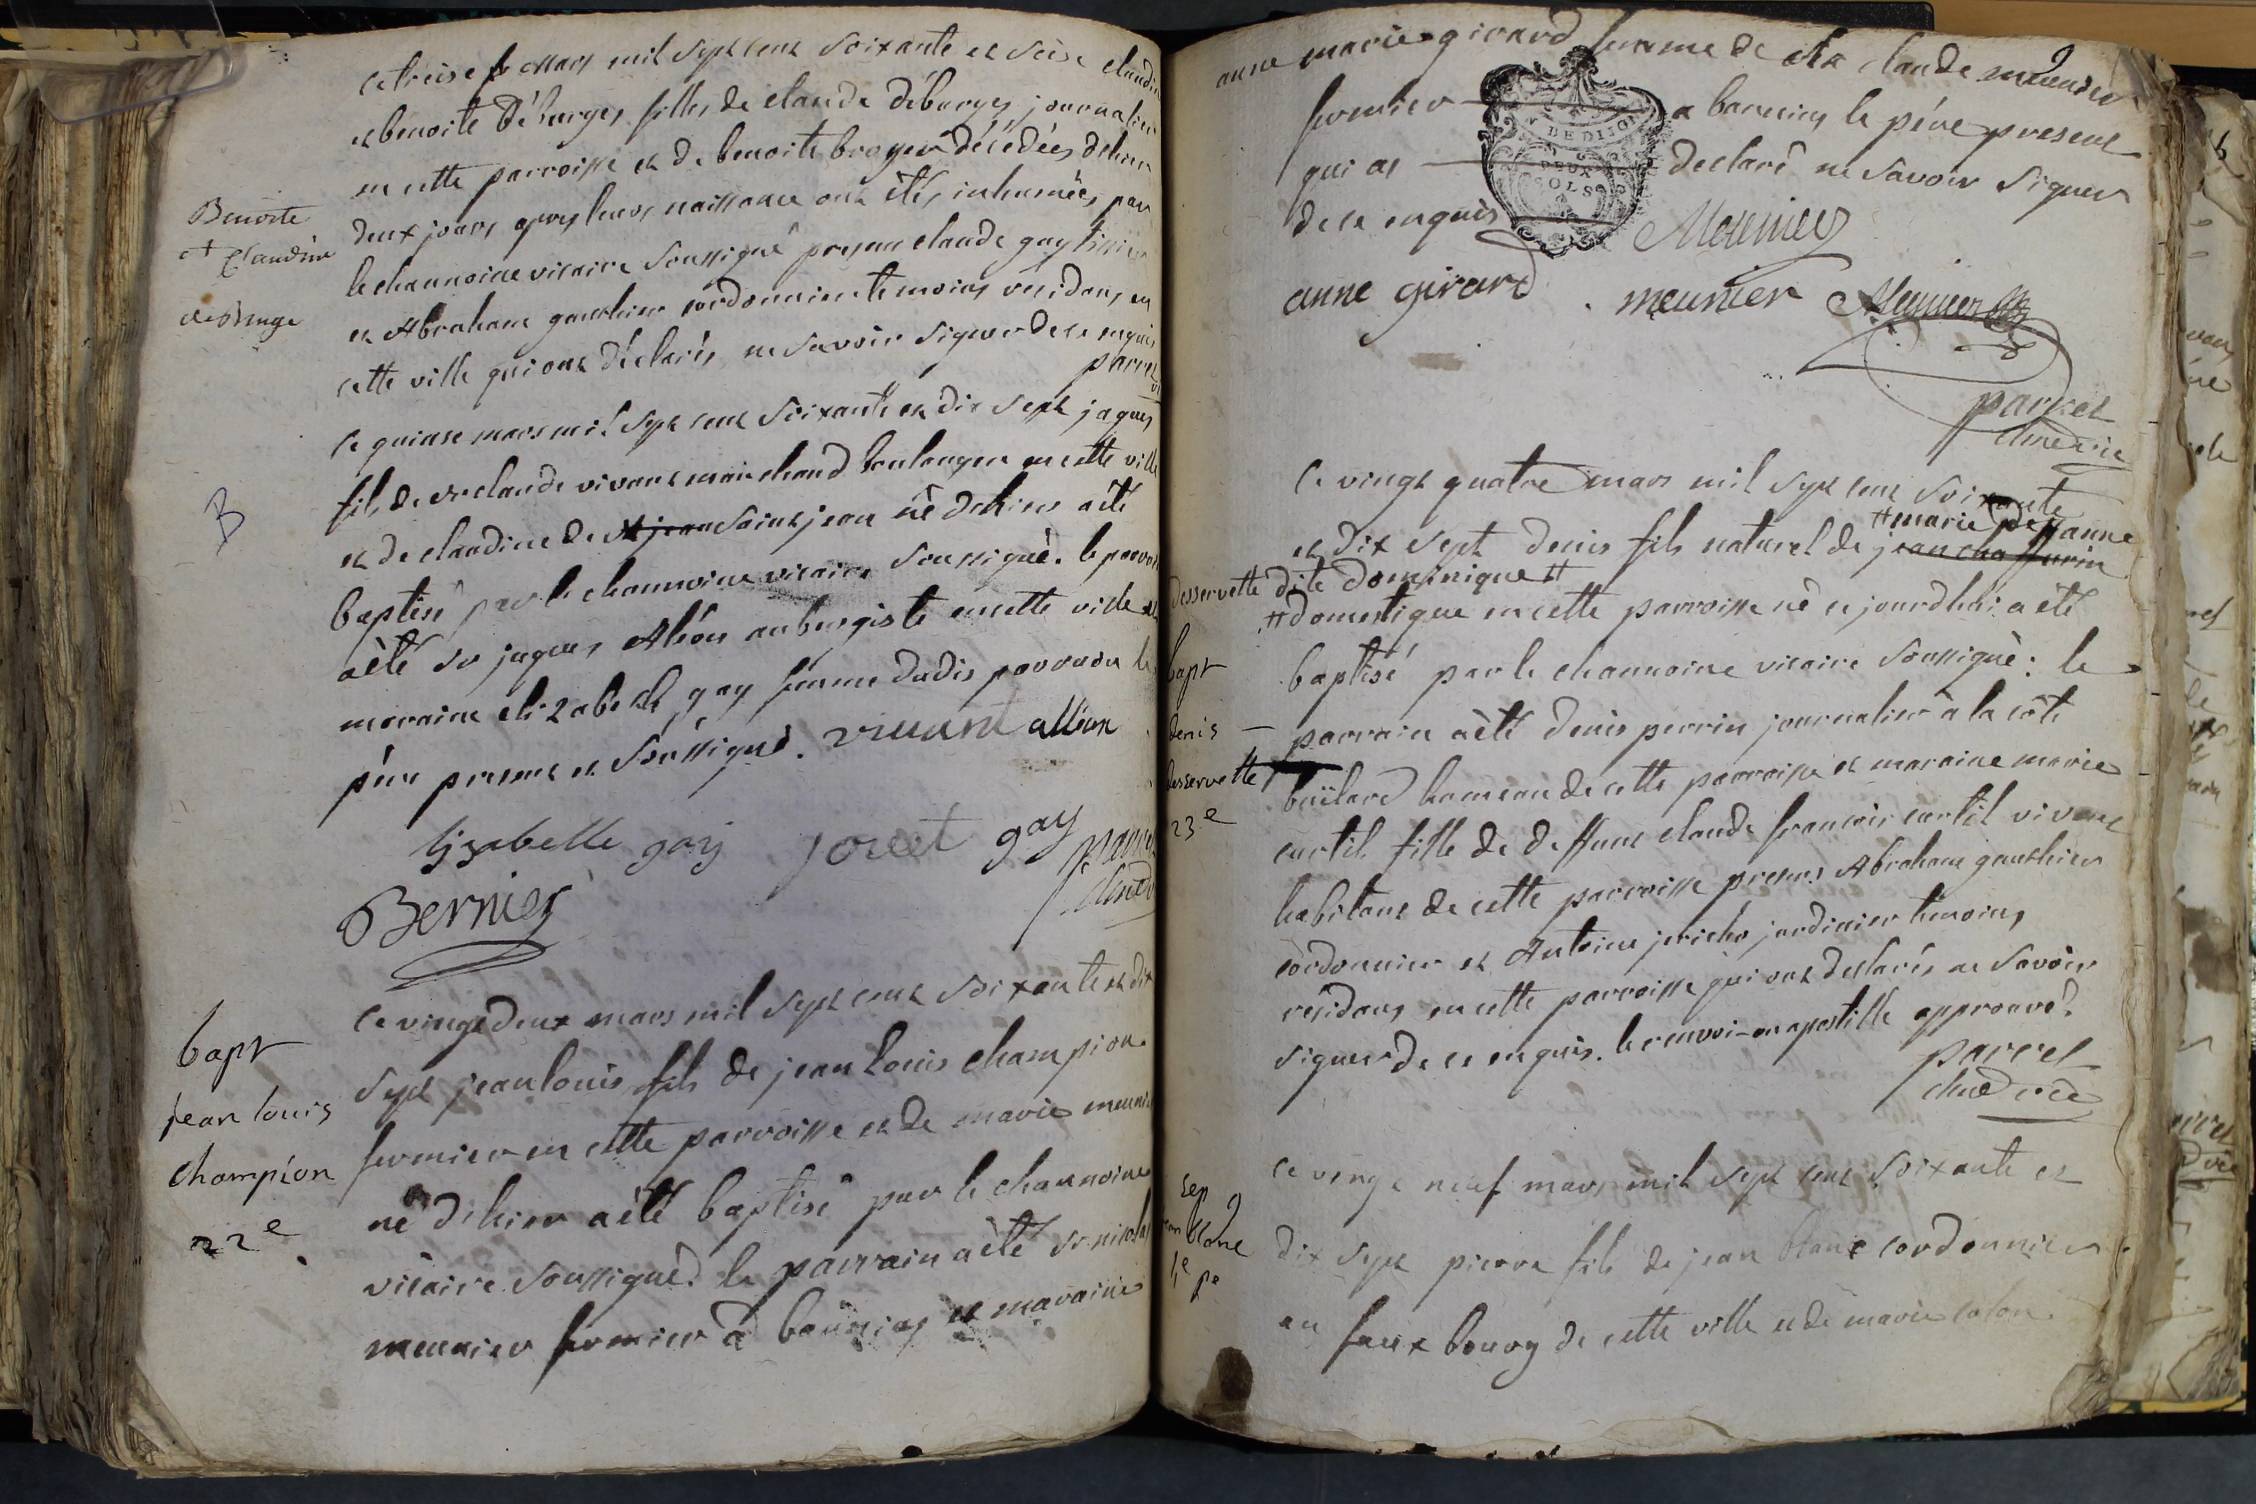 ce treise mars mil sept cent soixante et seise claudine
et benoite Déburges filles de claude déburges journalier
en cette parroisse et de benoite broyer décédées d'hier
deux jours apres leurs naissance ont étés inhumées par
Benoite
et Claudine
deburge
le channoine vicaire soussigné presens claude gay
et Abraham gauthier cordonnier temoins residans en
cette ville qui ont déclarés ne savoir signer de ce enquis
parret
B
ce quinse mars mil sept cent soixante et dix sept jaques
fils de sr claude vivant marchand boulanger en cette ville
et de claudine de st jean saint jean né d'hier a été
baptisé par le channoine vicaire soussigné. le parrain
a été sr jaques Aléon aubergiste en cette ville et
maraine elizabeth gay femme dudit parrain le
père present et soussigné. vivant alléon
ysabelle gay jovet gay
parret
Bernier
bapt
jean louis
champion
22e
ce vingt deux mars mil sept cent soixante et dix
sept jean louis fils de jean louis champion
fermier en cette parroisse et de marie meunier
né d'hier a été baptisé par le channoine
vicaire soussigné. le parrain a été sr nicolas
meunier fermier à et maraine
anne marie girard femme de claude meunier
fermier a le père present
DE DIJON
DEUX
SOLS
qui as declaré ne savoir signer
de ce enquis
Meunier
anne girard . meunier Meunier
parret
chne vic
ce vingt quatre mars mil sept cent soixante
et dix sept denis fils naturel de jean chaffurin
# marie jeanne
desservette dite dominique #
# domestique en cette parroisse né ce jourd'hui a été
bapt
denis
desservette
23e
baptisé par le channoine vicaire soussigné: le
parrain a été denis perrin journalier à la côte
hameau de cette parroisse et maraine marie
curtil fille de deffunt claude francois curtil vivant
habitant de cette parroisse presens Abraham gauthier
cordonnier et Antoine jericho jardinier temoins
résidans en cette parroisse qui ont déclarés ne savoir
signer de ce enquis. le renvoi en apostille approuvé.
parret
chne vic
sep
jean blanc
pe
ce vingt neuf mars mil sept cent soixante et
dix sept pierre fils de jean blanc cordonnier
au faux bourg de cette ville et de marie colon